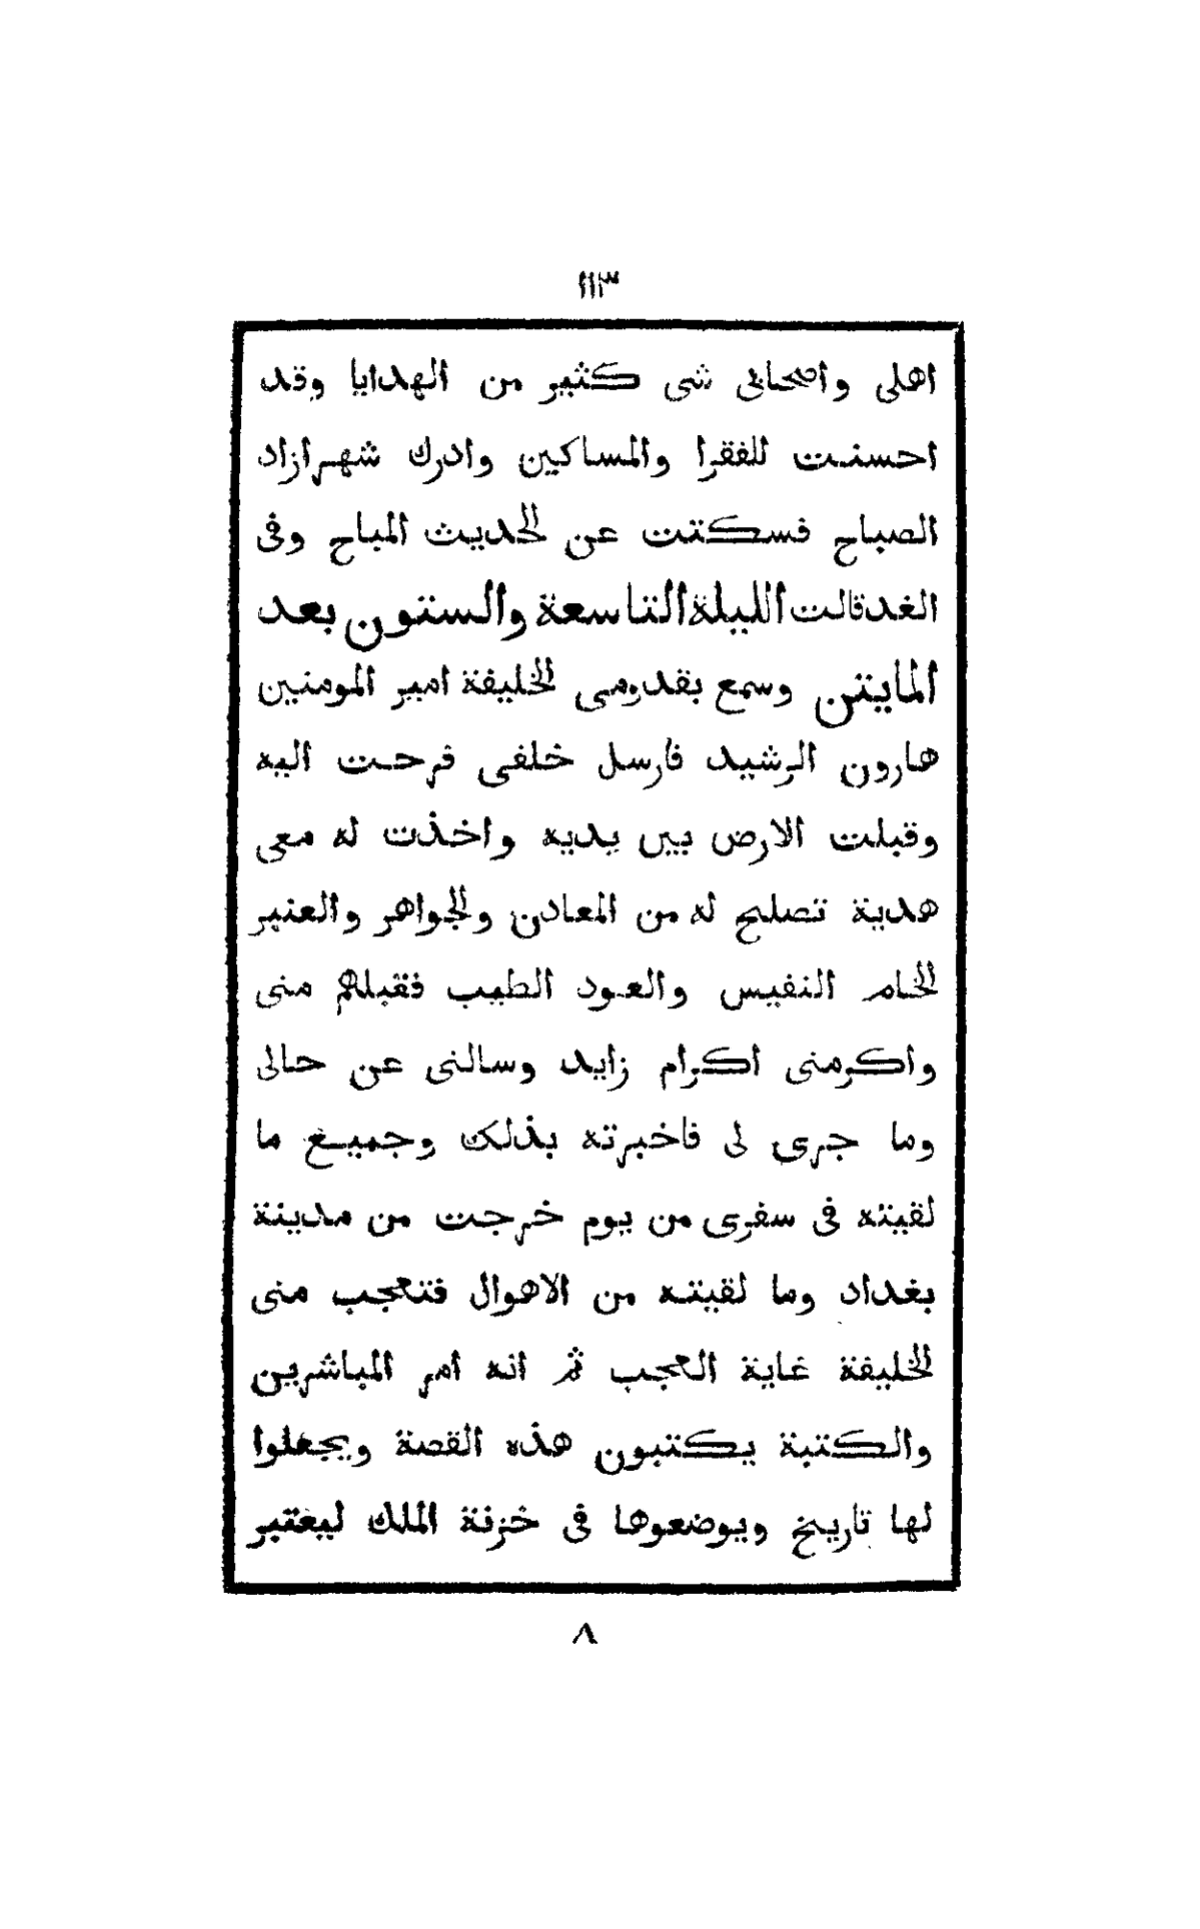 ١١٣
اهلى واصحابى شى كثير من الهدايا وقد
احسنت للفقرا والمساكين وادرك شهرازاد
الصباح فسكتت عن الحديث المباح وفى
الغد قالت الليلة التاسعة والستون بعد
المايتن وسمع بقدومى الخليفة امير المومنين
هارون الرشيد فارسل خلفى فرحت اليه
وقبلت الارض بين يديه واخذت له معى
هدية تصلح له من المعادن والجواهر والعنبر
الخام النفيس والعود الطيب فقبلهم منى
واكرمنى اكرام زايد وسالنى عن حالى
وما جرى لى فاخبرته بذلك وجميع ما
لقيته فى سفرى من يوم خرجت من مدينة
بغداد وما لقيته من الاهوال فتعجب منى
الخليفة غاية العجب ثم انه امر المباشرين
والكتبة يكتبون هذه القصة ويجعلوا
لها تاريخ ويوضعوها فى خزنة الملك ليعتبر
٨